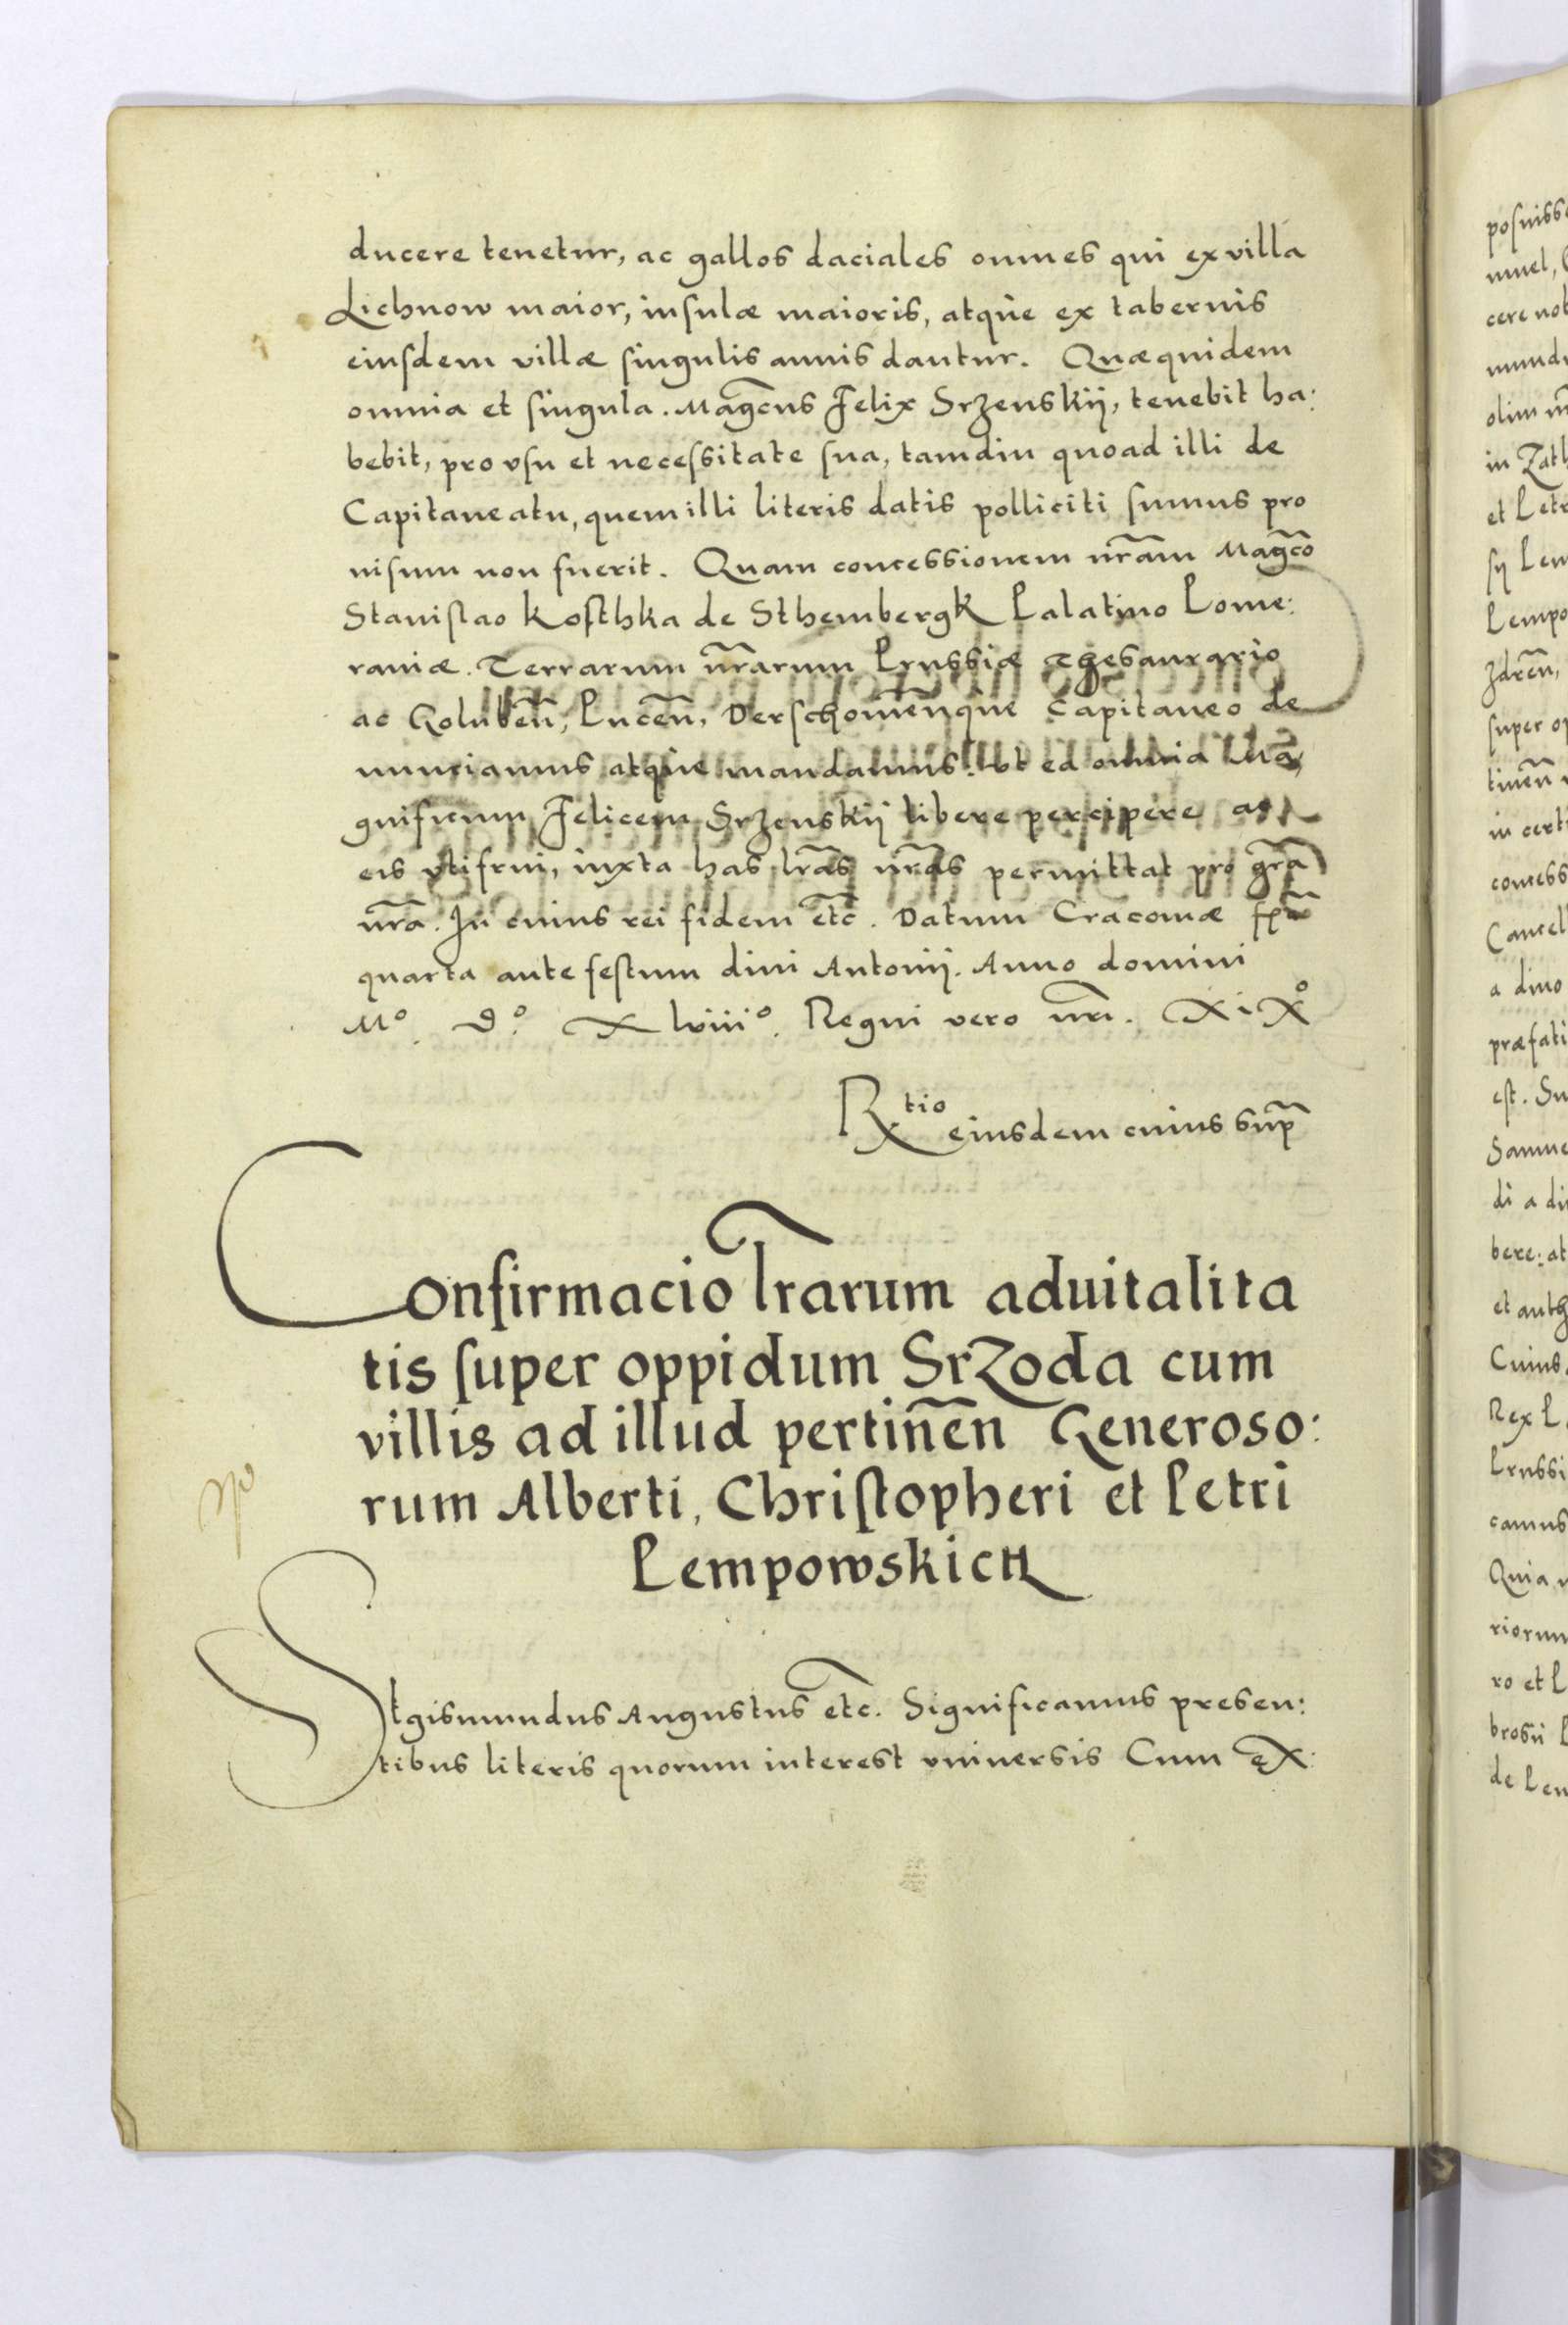 ducere tenetur, ac gallos daciales omnes qui ex villa
Lichnow maior, insulæ maioris, atque ex tabernis
eiusdem villæ singulis annis dantur. Quæquidem
omnia et singula. Magcus Felix Srzenskij, tenebit ha:
bebit, pro vsu et necessitate sua, tamdiu quoad illi de
Capitaneatu, quem illi literis datis polliciti sumus pro
uisum non fuerit. Quam concessionem nram Magco
Stanislao Kosthka de Sthembergk Palatino Pome:
raniæ. Terrarum nrarum Prussiæ Thesaurario
ac Goluben, Lucen, Derschomenque Capitaneo de
nunciamus atque mandamus. vt ea omnia Ma,
gnificum Felicem Srzenskij libere percipere ac
eis vtifrui, iuxta has lras nras permittat pro gra
nra. In cuius rei fidem etc. Datum Cracouiæ
quarta ante festum diui Antonij. Anno domini
Mo. Do. XLviiio. Regni vero nri. XiXo
Rtio eiusdem cuius sup
Confirmacio lrarum aduitalita
tis super oppidum SrZoda cum
villis ad illud pertinen Generoso:
rum Alberti, Christopheri et Petri
Pempowskich
Sigismundus Augustus etc. Significamus presen:
tibus literis quorum interest vniuersis Cum eX:
posuiss
muel,
cere no
mund
olim
in Zat
et Petr
sij Pem
Pempo
Zdren,
super o
tinen
in cert
concess
Cancel
a diuo
præfati
est. Su
Samue
di a di
bere: at
et auth
Cuius
Rex P
Prussi
camus
Quia
riorum
ro et P
brosii
de Pem